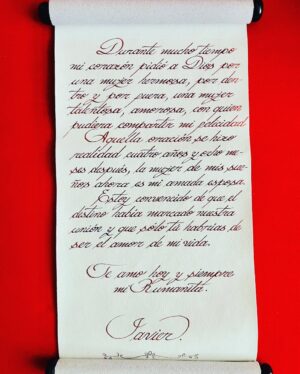 Durante mucho tiempo
mi corazón pidió a Dios por
una mujer hermosa, por den-
tro y por fuera, una mujer
talentosa, amorosa, con quien
pudiera compartir mi felicidad.
Aquella oración se hizo
realidad cuatro años y ocho me-
ses después, la mujer de mis sue-
ños ahora es mi amada esposa.
Estoy convencido de que el
destino había marcado nuestra
unión y que sólo tú habrías de
ser el amor de mi vida.
Te amo hoy y siempre
mi Rumanita.
Javier.